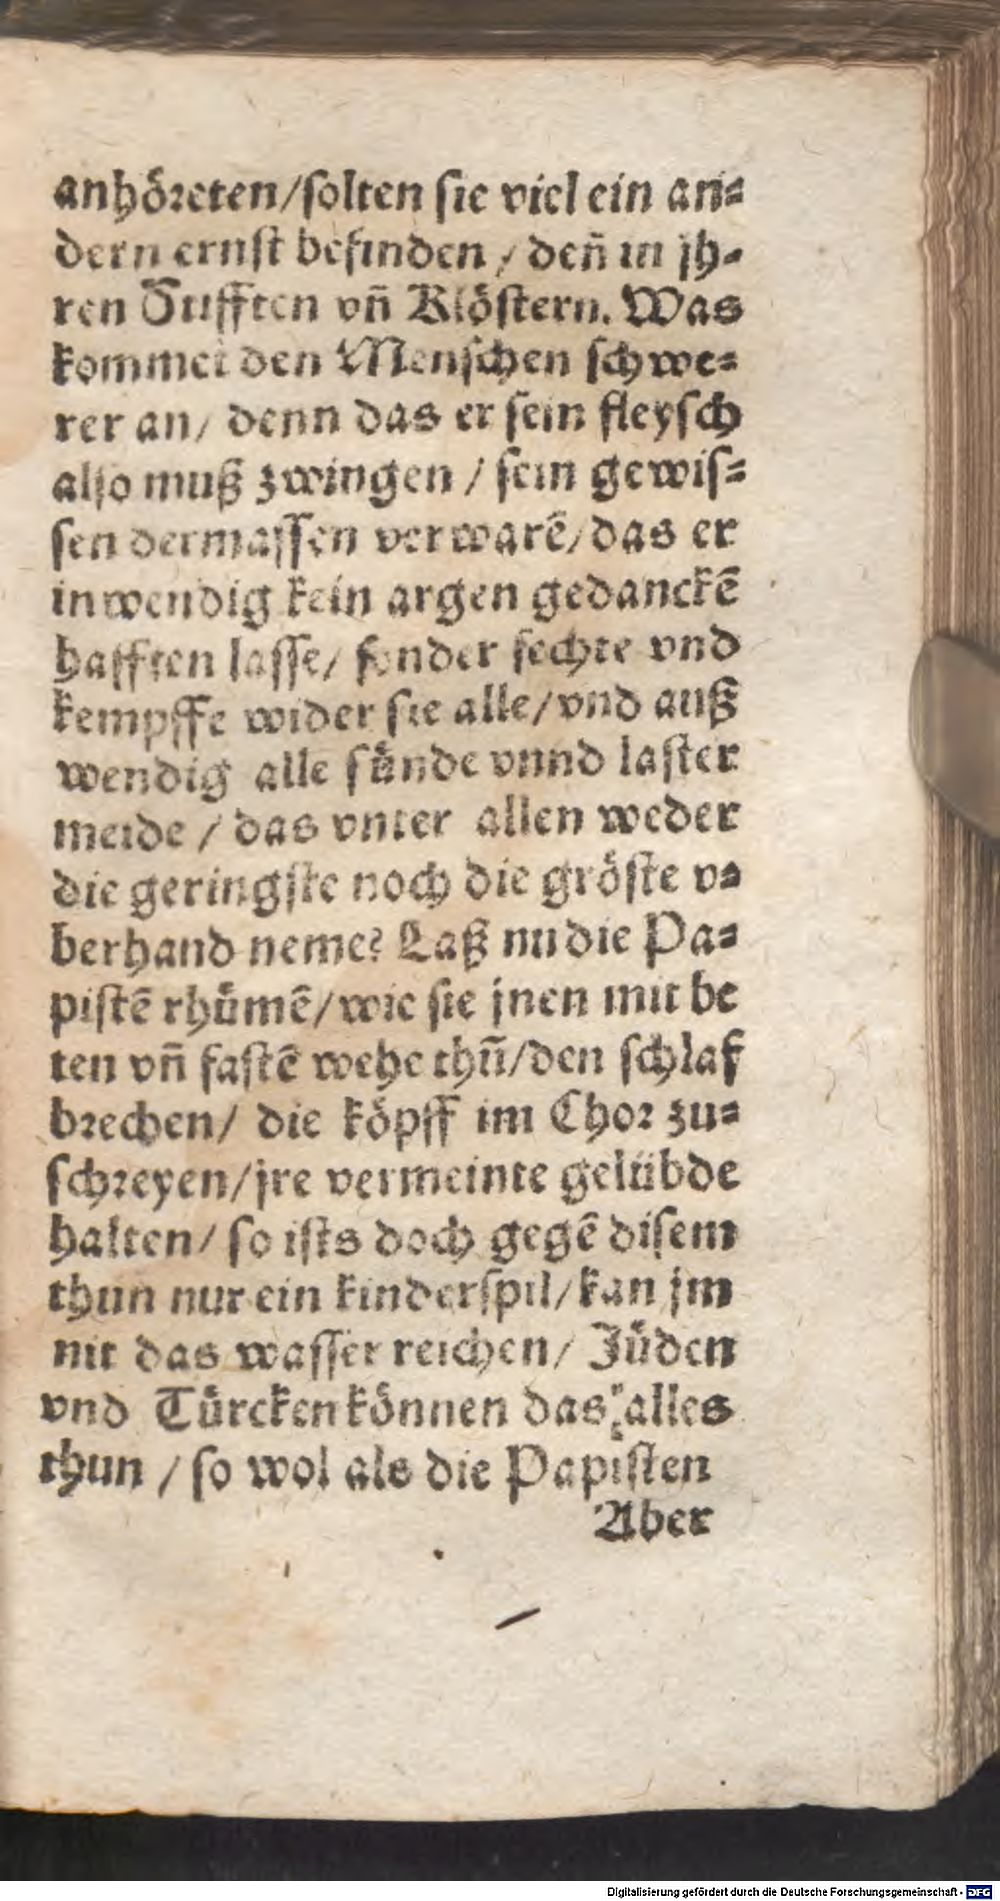 anhöreten/ſolten ſie viel ein an⸗
dern ernſt befinden / deñ in jh⸗
ren Stifften vñ Klöſtern. Was
kommet den Menſchen ſchwe⸗
rer an/ denn das er ſein fleyſch
alſo muß zwingen / ſein gewiſ⸗
ſen dermaſſen verwarē/das er
inwendig kein argen gedanckē
hafften laſſe/ ſonder fechte vnd
kempffe wider ſie alle/vnd auß
wendig alle ſünde vnnd laſter
meide / das vnter allen weder
die geringſte noch die gröſte v⸗
berhand neme? Laß nu die Pa⸗
piſtē rhümē/wie ſie jnen mit be
ten vñ faſtē wehe thũ/den ſchlaf
brechen/ die köpff im Chor zu⸗
ſchreyen/jre vermeinte gelübde
halten/ ſo iſts doch gegē diſem
thun nur ein kinderſpil/kan jm
nit das waſſer reichen/ Jüden
vnd Türcken können das alles
thun / ſo wol als die Papiſten
Aber
Digitalisierung gefördert durch die Deutsche Forschungsgemeinschaft - DFG